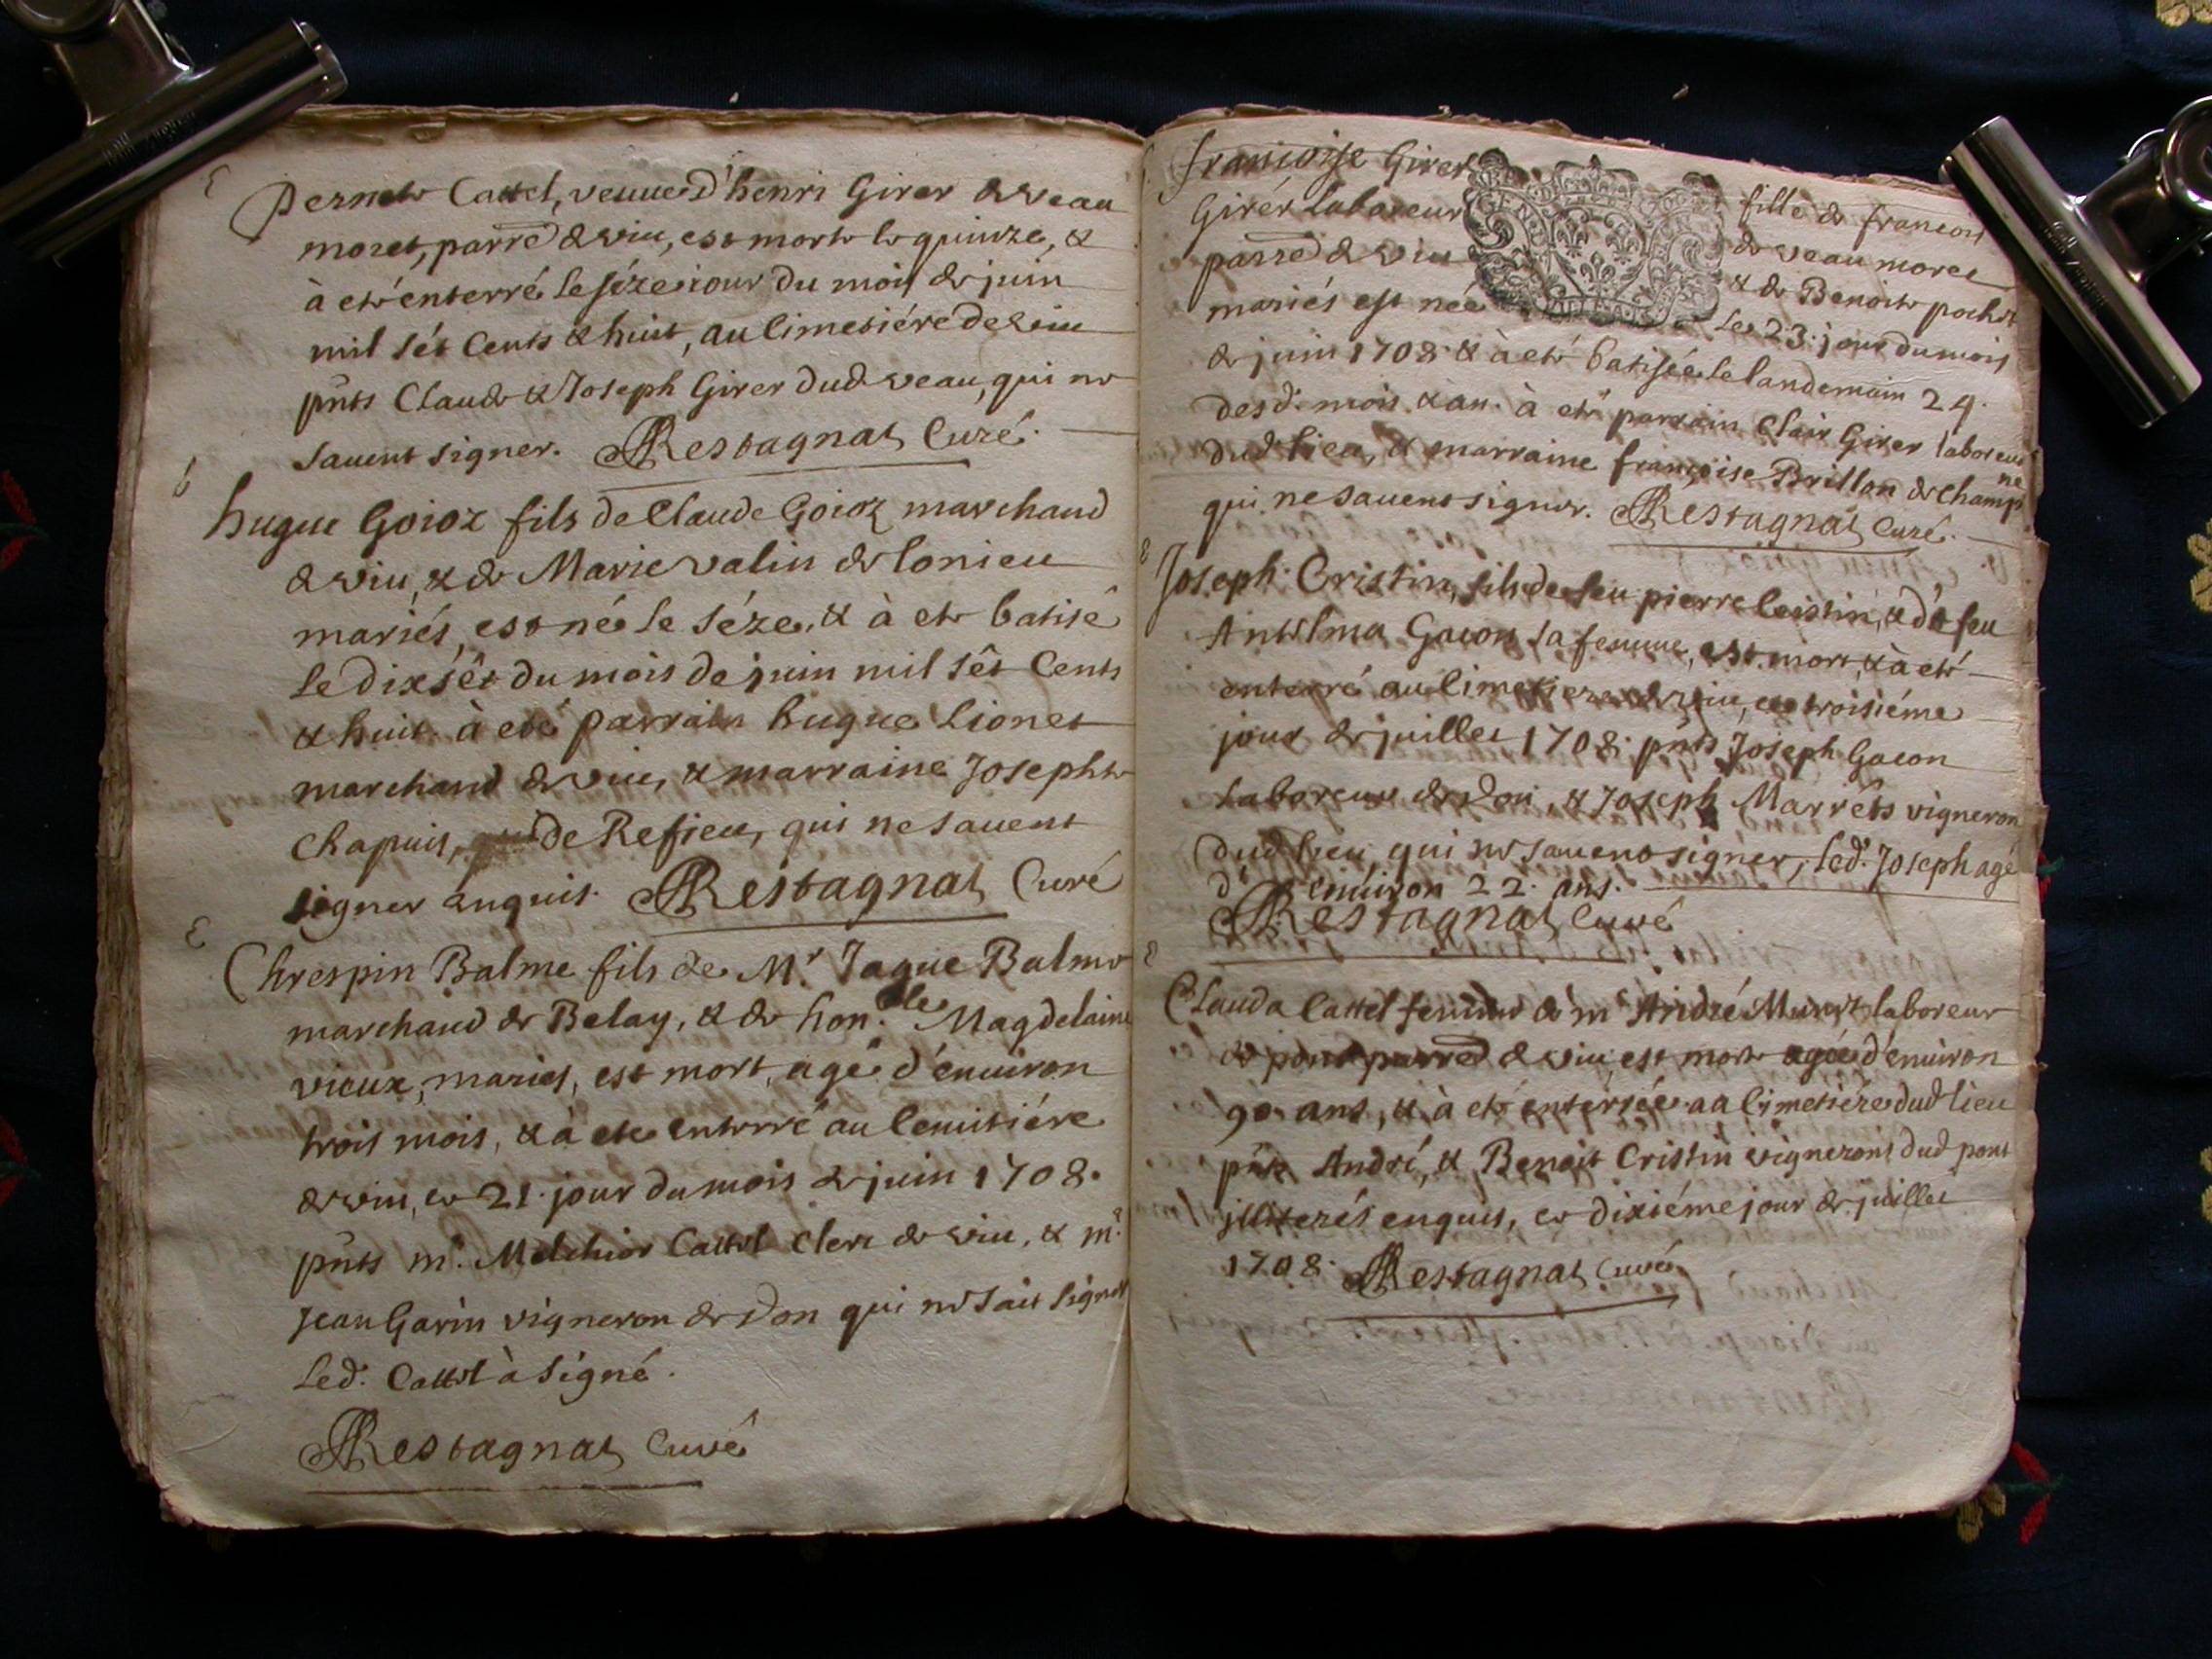 Pernete Cattel, veuue d'henri Girer de veau
moret, parred de viu, est morte le quinze, &
à eté enterré le séze jour du mois de juin
mil sét cents & huit, au Cimetiére de viu
pnts Claude & Joseph Girer dud veau, qui ne
sauent signer. Restagnat Curé.
hugue Goioz fils de Claude Goioz marchand
de viu, & de Marie valin de lonieu
mariés, est né le séze, & à eté batisé
le dixsét du mois de juin mil sét Cents
& huit. à eté parrain hugue Lionet
marchand de viu, & marraine Josephte
Chapuis, de Refieu, qui ne sauent
signer anquis. Restagnat Curé
Chrespin Balme fils de Mr Jaque Balme
marchand de Belay, & de hon.ble Magdelaine
vieux, mariés, est mort, agé d'enuiron
trois mois, & à eté enterré au Cemitiére
de viu, ce 21. jour du mois de juin 1708.
pnts me. Melchior Cattel Clerc de viu, & me.
Jean Garin vigneron de Don qui ne sait signer
led. Cattel à signé.
Restagnat Curé
françoise Girer fille de francois
Girér laboreur de veau moret
parred de viu & de Benoite pochet
mariés est née le 23. jour du mois
de juin 1708. & à eté batisée le landemain 24.
desd. mois & an. à eté parrain Clair Girer laboreur
dud. lieu, & marraine françoise Brillon de Champne
qui ne sauent signer. Restagnat Curé.
Joseph Cristin, fils de feu pierre Cristin, & de feu
Antelma Gacon sa femme, est mort, & à eté
enterré au Cimetiere de viu, ce troisiéme
jour de juillet 1708. pnts Joseph Gacon
Laboreur de Don, & Joseph Marréts vigneron
dud lieu, qui ne sauent signer, led. Joseph agé
d'enuiron 22. ans.
Restagnat Curé
Clauda Cattel femme de me André laboreur
de pont parred de viu, est morte agée d'enuiron
90. ans, & à eté enterrée au Cimetiére dud lieu
pnts André, & Benoit Cristin vignerons dud pont
jlliterés enquis, ce dixiéme jour de juillet
1708. Restagnat Curé